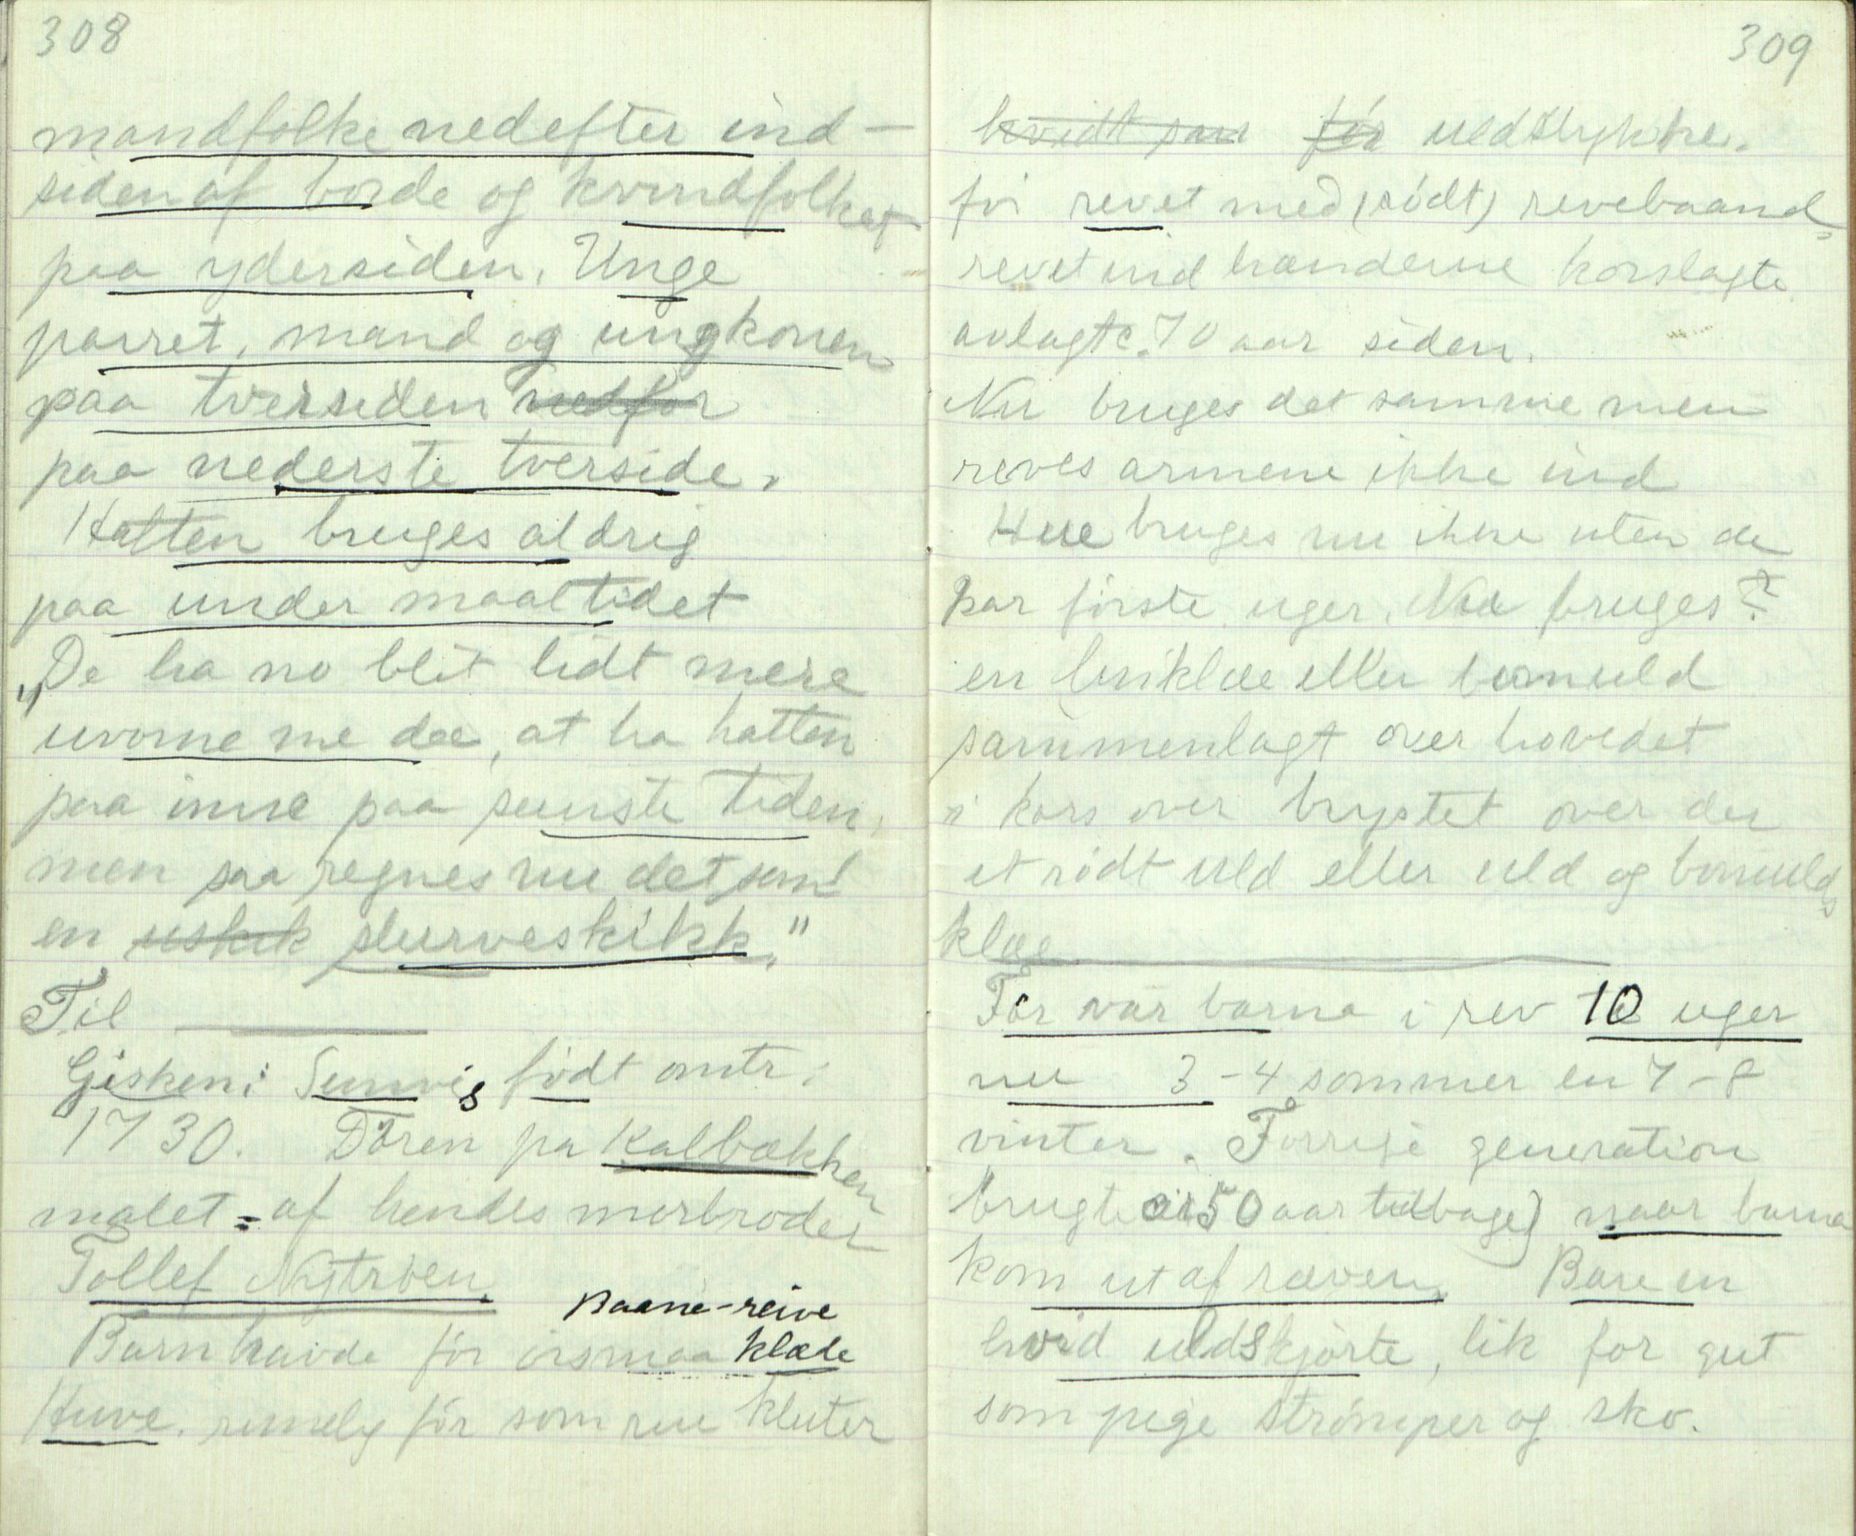 308
mandfolke nedefter ind-
siden af borde og kvindfolket
paa ydersiden. Unge
parret, mand og ungkonen
paa tversiden nedfor
paa nederste tverside.
Hatten bruges aldrig
paa under maaltidet
"De ha no blit lidt mere
uvorne me dæ, at ha hatten
paa inne paa seinste tiden,
men saa regnes nu det som
en uskik slurveskikk."
Til
Gisken i Sunvis født omtr.
1730. Døren pa Kalbækken
malet af hendes morbroder
Tollef Nytrøen
Baane-reive
Barn havde før klæde
Huve. før som nu kluter
309
hvidt før uldstykke.
før revet med (rødt) revebaand
revet ind hænderne korslagte
avlagte. 70 aar siden.
Nu bruges det samme men
reves armene ikke ind
Hue bruges nu ikke uten de
par første uger. Naa bruges?
en linklæ eller bomuld
sammenlagt over hovedet
i kors over brystet over der
et rødt uld eller uld og bomulds
klæe
Før var barna i rev 10 uger
nu 3-4 sommer en 7-8
vinter. Forrige generation
brugte 50 aar tilbage) naar barna
kom ut af ræven. Bare en
hvid uldskjorte, lik for gut
som pige strømper og sko.